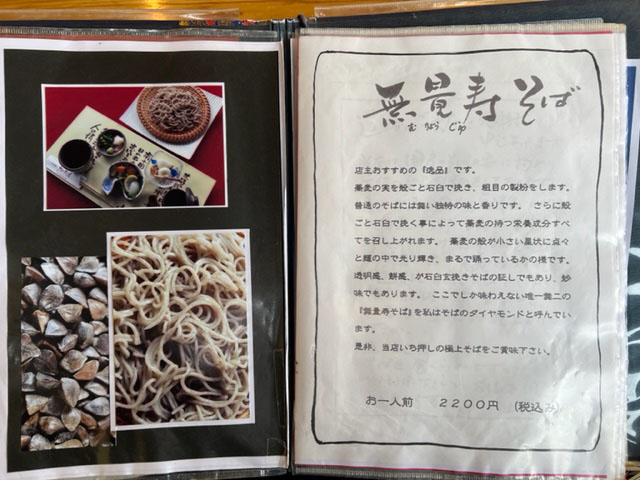 無量寿そば
むりょうじゅ
店主おすすめの『逸品』です。
蕎麦の実を殻ごと石臼で挽き、粗目の製粉をします。
普通のそばには無い独特の味と香りです。 さらに殻
ごと石臼で挽く事によって蕎麦の持つ栄養成分すべ
てを召し上がれます。 蕎麦の殻が小さい星状に点々
と麺の中で光り輝き、まるで踊っているかの様です。
透明感、鮮感、が石臼玄挽きそばの証しでもあり、妙
味でもあります。 ここでしか味わえない唯一無二の
『無量寿そば』を私はそばのダイヤモンドと呼んでい
ます。
是非、当店いち押しの極上そばをご賞味下さい。
お一人前 2200円 (税込み)